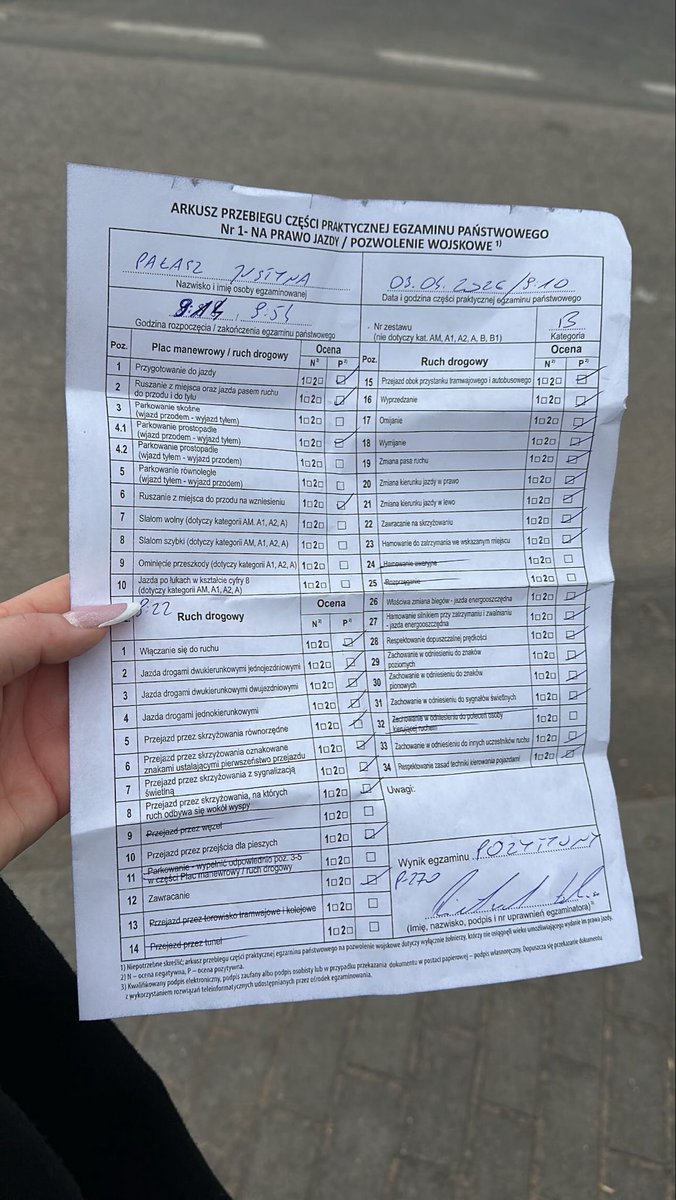 ARKUSZ PRZEBIEGU CZĘŚCI PRAKTYCZNEJ EGZAMINU PAŃSTWOWEGO
Nr 1- NA PRAWO JAZDY / POZWOLENIE WOJSKOWE ¹⁾
PAŁASZ JUSTYNA
Nazwisko i imię osoby egzaminowanej
03.04.2026/9.10
Data i godzina części praktycznej egzaminu państwowego
9.14, 9.54
Godzina rozpoczęcia / zakończenia egzaminu państwowego
Nr zestawu
(nie dotyczy kat. AM, A1, A2, A, B, B1)
B
Kategoria
Poz. Plac manewrowy / ruch drogowy Ocena
N²⁾ P²⁾
1 Przygotowanie do jazdy 1□2□
2 Ruszanie z miejsca oraz jazda pasem ruchu
do przodu i do tyłu 1□2□
3 Parkowanie skośne
(wjazd przodem - wyjazd tyłem) 1□2□
4.1 Parkowanie prostopadłe
(wjazd przodem - wyjazd tyłem) 1□2□
4.2 Parkowanie prostopadłe
(wjazd tyłem - wyjazd przodem) 1□2□
5 Parkowanie równoległe
(wjazd tyłem - wyjazd przodem) 1□2□
6 Ruszanie z miejsca do przodu na wzniesieniu 1□2□
7 Slalom wolny (dotyczy kategorii AM, A1, A2, A) 1□2□
8 Slalom szybki (dotyczy kategorii AM, A1, A2, A) 1□2□
9 Ominięcie przeszkody (dotyczy kategorii A1, A2, A) 1□2□
10 Jazda po łukach w kształcie cyfry 8
(dotyczy kategorii AM, A1, A2, A) 1□2□
9.22
Ruch drogowy Ocena
N²⁾ P²⁾
1 Włączanie się do ruchu 1□2□
2 Jazda drogami dwukierunkowymi jednojezdniowymi 1□2□
3 Jazda drogami dwukierunkowymi dwujezdniowymi 1□2□
4 Jazda drogami jednokierunkowymi 1□2□
5 Przejazd przez skrzyżowania równorzędne 1□2□
6 Przejazd przez skrzyżowania oznakowane
znakami ustalającymi pierwszeństwo przejazdu 1□2□
7 Przejazd przez skrzyżowania z sygnalizacją
świetlną 1□2□
8 Przejazd przez skrzyżowania, na których
ruch odbywa się wokół wyspy 1□2□
9 Przejazd przez węzeł 1□2□
10 Przejazd przez przejścia dla pieszych 1□2□
11 Parkowanie - wypełnić odpowiednio poz. 3-5
w części Plac manewrowy / ruch drogowy 1□2□
12 Zawracanie 1□2□
13 Przejazd przez torowisko tramwajowe i kolejowe 1□2□
14 Przejazd przez tunel 1□2□
Poz. Ruch drogowy Ocena
N²⁾ P²⁾
15 Przejazd obok przystanku tramwajowego i autobusowego 1□2□
16 Wyprzedzanie 1□2□
17 Omijanie 1□2□
18 Wymijanie 1□2□
19 Zmiana pasa ruchu 1□2□
20 Zmiana kierunku jazdy w prawo 1□2□
21 Zmiana kierunku jazdy w lewo 1□2□
22 Zawracanie na skrzyżowaniu 1□2□
23 Hamowanie do zatrzymania we wskazanym miejscu 1□2□
24 Hamowanie awaryjne 1□2□
25 Rozprzęganie 1□2□
26 Właściwa zmiana biegów - jazda energooszczędna 1□2□
27 Hamowanie silnikiem przy zatrzymaniu i zwalnianiu
- jazda energooszczędna 1□2□
28 Respektowanie dopuszczalnej prędkości 1□2□
29 Zachowanie w odniesieniu do znaków
poziomych 1□2□
30 Zachowanie w odniesieniu do znaków
pionowych 1□2□
31 Zachowanie w odniesieniu do sygnałów świetlnych 1□2□
32 Zachowanie w odniesieniu do poleceń osoby
kierującej ruchem 1□2□
33 Zachowanie w odniesieniu do innych uczestników ruchu 1□2□
34 Respektowanie zasad techniki kierowania pojazdami 1□2□
Uwagi:
Wynik egzaminu POZYTYWNY
P-270
(Imię, nazwisko, podpis i nr uprawnień egzaminatora) ³⁾
1) Niepotrzebne skreślić; arkusz przebiegu części praktycznej egzaminu państwowego na pozwolenie wojskowe dotyczy wyłącznie żołnierzy, którzy nie osiągnęli wieku umożliwiającego wydanie im prawa jazdy.
2) N – ocena negatywna, P – ocena pozytywna.
3) Kwalifikowany podpis elektroniczny, podpis zaufany albo podpis osobisty lub w przypadku przekazania dokumentu w postaci papierowej – podpis własnoręczny. Dopuszcza się przekazanie dokumentu
z wykorzystaniem rozwiązań teleinformatycznych udostępnianych przez ośrodek egzaminowania.